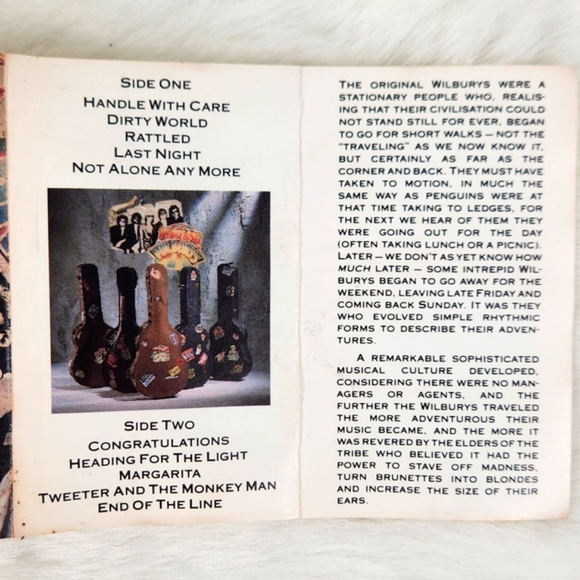 SIDE ONE
HANDLE WITH CARE
DIRTY WORLD
RATTLED
LAST NIGHT
NOT ALONE ANY MORE
SIDE TWO
CONGRATULATIONS
HEADING FOR THE LIGHT
MARGARITA
TWEETER AND THE MONKEY MAN
END OF THE LINE
THE ORIGINAL WILBURYS WERE A
STATIONARY PEOPLE WHO, REALIS-
ING THAT THEIR CIVILISATION COULD
NOT STAND STILL FOR EVER, BEGAN
TO GO FOR SHORT WALKS — NOT THE
"TRAVELING" AS WE NOW KNOW IT,
BUT CERTAINLY AS FAR AS THE
CORNER AND BACK. THEY MUST HAVE
TAKEN TO MOTION, IN MUCH THE
SAME WAY AS PENGUINS WERE AT
THAT TIME TAKING TO LEDGES, FOR
THE NEXT WE HEAR OF THEM THEY
WERE GOING OUT FOR THE DAY
(OFTEN TAKING LUNCH OR A PICNIC).
LATER — WE DON'T AS YET KNOW HOW
MUCH LATER — SOME INTREPID WIL-
BURYS BEGAN TO GO AWAY FOR THE
WEEKEND, LEAVING LATE FRIDAY AND
COMING BACK SUNDAY. IT WAS THEY
WHO EVOLVED SIMPLE RHYTHMIC
FORMS TO DESCRIBE THEIR ADVEN-
TURES.
A REMARKABLE SOPHISTICATED
MUSICAL CULTURE DEVELOPED,
CONSIDERING THERE WERE NO MAN-
AGERS OR AGENTS, AND THE
FURTHER THE WILBURYS TRAVELED
THE MORE ADVENTUROUS THEIR
MUSIC BECAME, AND THE MORE IT
WAS REVERED BY THE ELDERS OF THE
TRIBE WHO BELIEVED IT HAD THE
POWER TO STAVE OFF MADNESS,
TURN BRUNETTES INTO BLONDES
AND INCREASE THE SIZE OF THEIR
EARS.